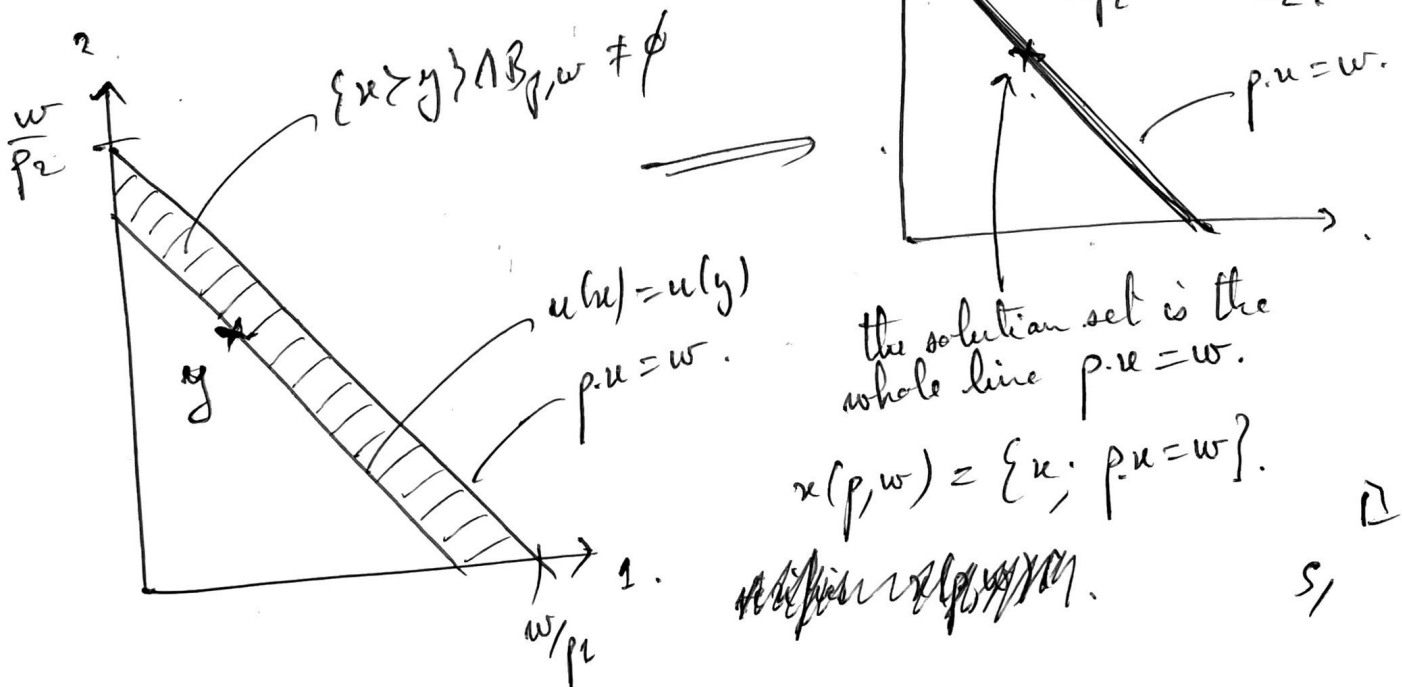 2
w/p₂
{x ≻ y} ∩ B_{p,w} ≠ ϕ
p.x = w.
u(x) = u(y)
p.x = w.
y
1.
w/p₁
the solution set is the
whole line p.x = w.
x(p,w) = {x; p.x = w}.